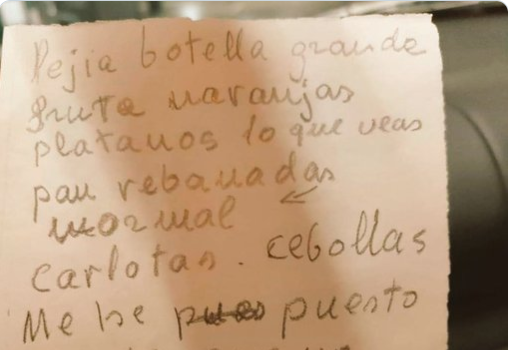 Pejia botella grande
fruta naranjas
platanos lo que veas
pan rebanadas
normal
carlotas. cebollas
Me he puesto